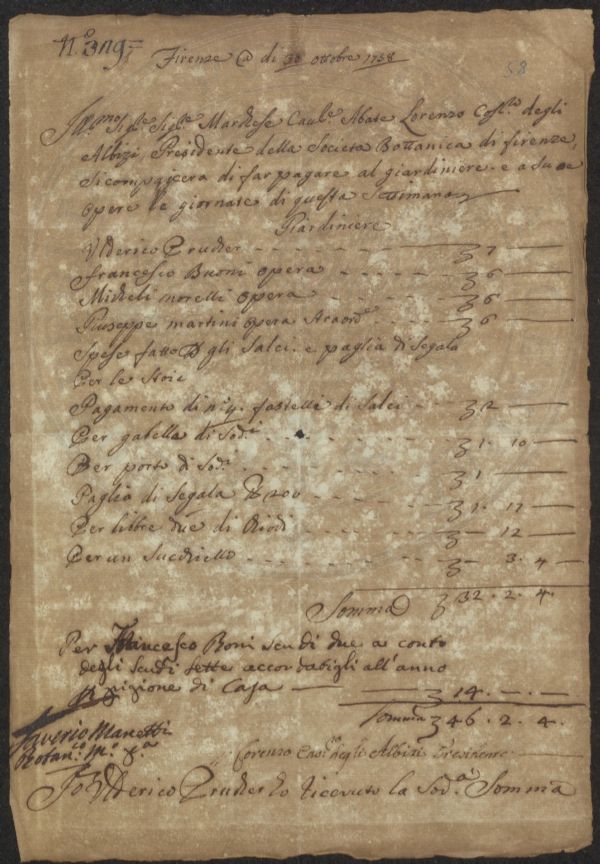 N.° 319=
58
Firenze @ di 30 ottobre 1758
Ill:mo Sig:re Sig:re Marchese Caul:e Abate Lorenzo Cos:to degli
Albizi, Presidente della Societa Bottanica di firenze,
Si compiacera di far pagare al giardiniere e a sue
opere le giornate di questa Settimana
Giardiniere
Ulderico Prucker - - - 7 —
Francesco Buoni opera - - - 6 —
Micheli morelli opera - - - 6 —
Giuseppe martini opera Straord:e - - 6 —
Spese fatte P gli Salci e paglia di Segala
Per le Stoie
Pagamento di n:° 4 fastella di Salci - - 2 —
Per gabella di Sod:i - - - 1. 10. —
Per porto di Sod:i - - - 1 —
Paglia di Segala 200 - - - 1. 17 —
Per libbre due di Chiodi - - - 12 —
Per un Succhiello - - - 3. 4 —
Somma 32. 2. 4.
Per Francesco Boni scudi due a conto
degli scudi sette accordatigli all'anno
P pigione di Casa — 14. —. —
Somma 46. 2. 4.
Saverio Manetti
Botan:co
Lorenzo Cas:to degli Albizi Presidente
Io Ulderico Prucker ho riceuuto la Sod:a Somma